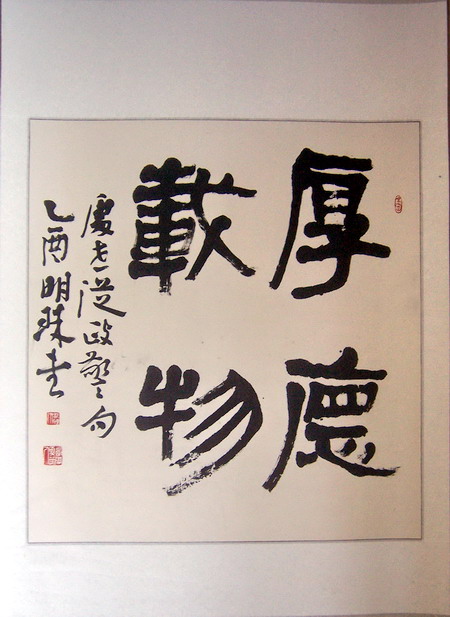 厚德
載物
處世從政警句
乙酉明珠書